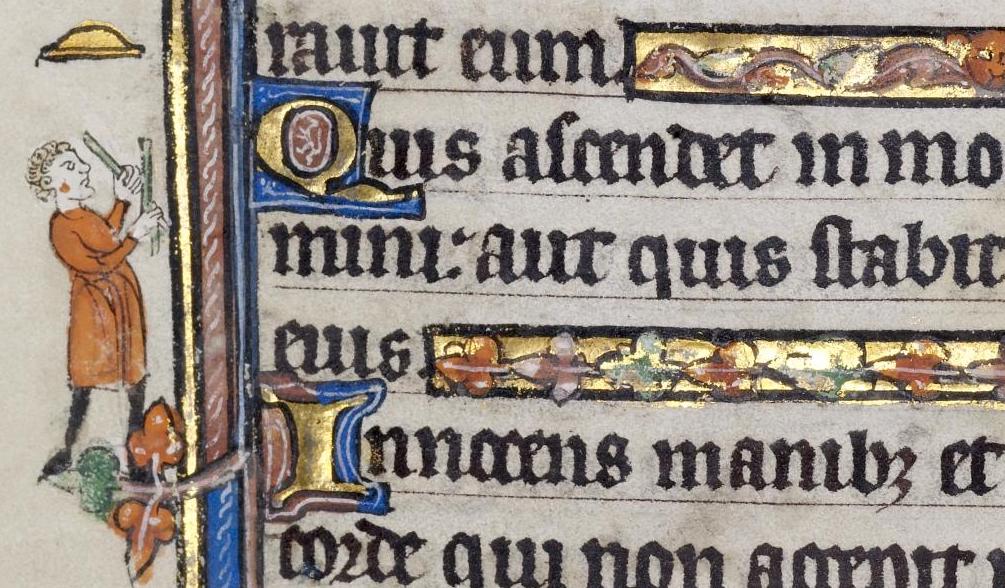 rauit eum
Quis ascendet in mo
mini: aut quis stabit
eius
Innocens manibꝫ et
corde qui non accepit